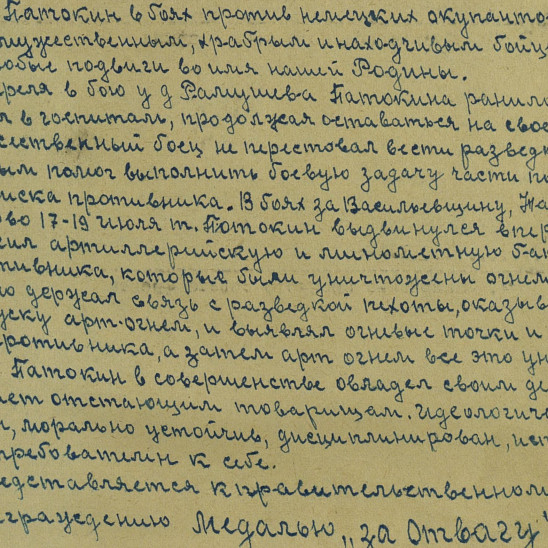 Патокин в боях против немецких окупанто
мужественным, храбрым и находчивым бойц
юбые подвиги во имя нашей Родины.
преля в бою у д Рамушева Патокина ранило
я в госпиталь, продолжая оставаться на свое
ественный боец не перестовал вести развед
ым помог выполнить боевую задачу части по
иска противника. В боях за Васильевщину,
ово 17-19 июля т. Патокин выдвинулся впер
ил артиллерийскую и минометную б-а
тивника, которые были уничтожены огнем
о держал связь с разведкой пехоты, оказыв
ску арт-огнем, и выявлял огневые точки и
ротивника, а затем арт огнем все это ун
Патокин в совершенстве овладел своим де
ает отстающим товарищам. Идеологиче
н, морально устойчив, дисциплинирован, ис
требователен к себе.
редставляется к правительственном
аграждению Медалью „за Отвагу"